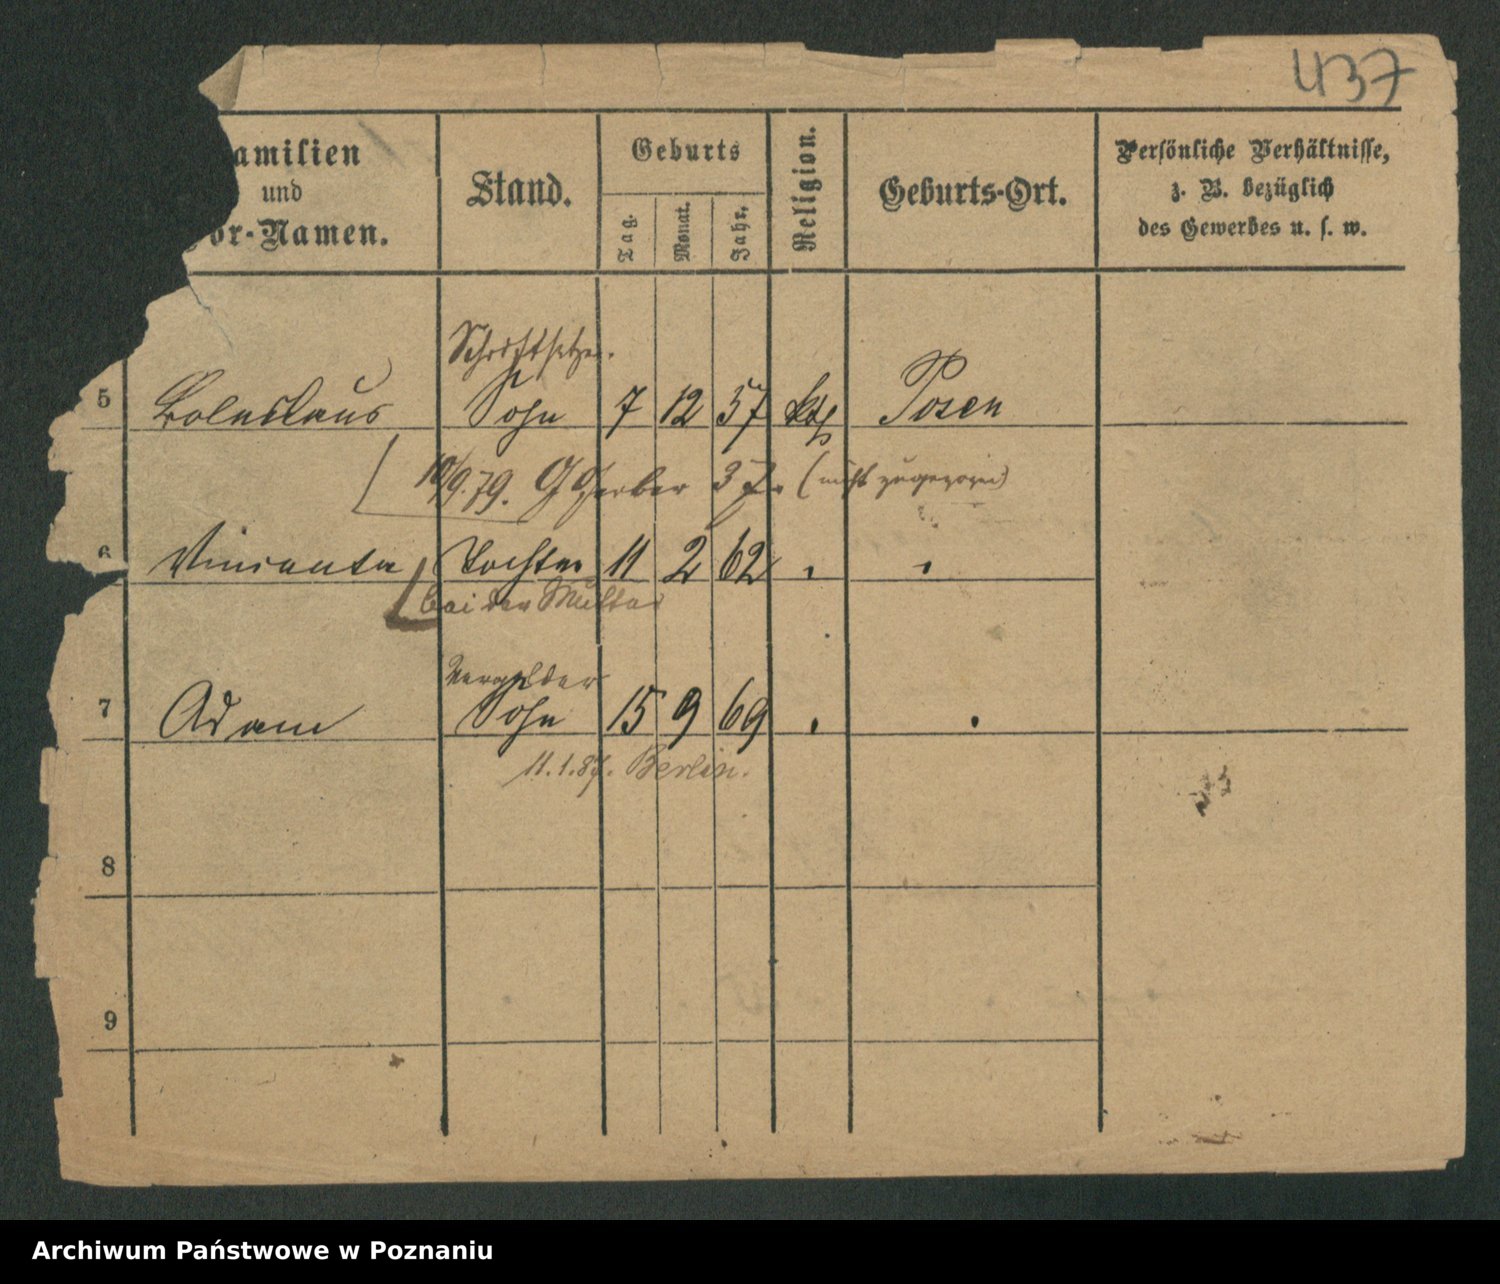 437
amilien
und
or-Namen.
Stand.
Geburts
Tag.
Monat.
Jahr.
Religion.
Geburts-Ort.
Persönliche Verhältnisse,
z. B. bezüglich
des Gewerbes u. s. w.
Schriftsetzer.
5 Boleslaus Sohn 7 12 57 kth Posen
10/9.79. Gr Gerber 37. (nicht zugezogen)
6 Vincenta Tochter 11 2 62 " "
bei der Mutter
Vergolder
7 Adam Sohn 15 9 69 " "
11.1.87. Berlin.
8
9
Archiwum Państwowe w Poznaniu